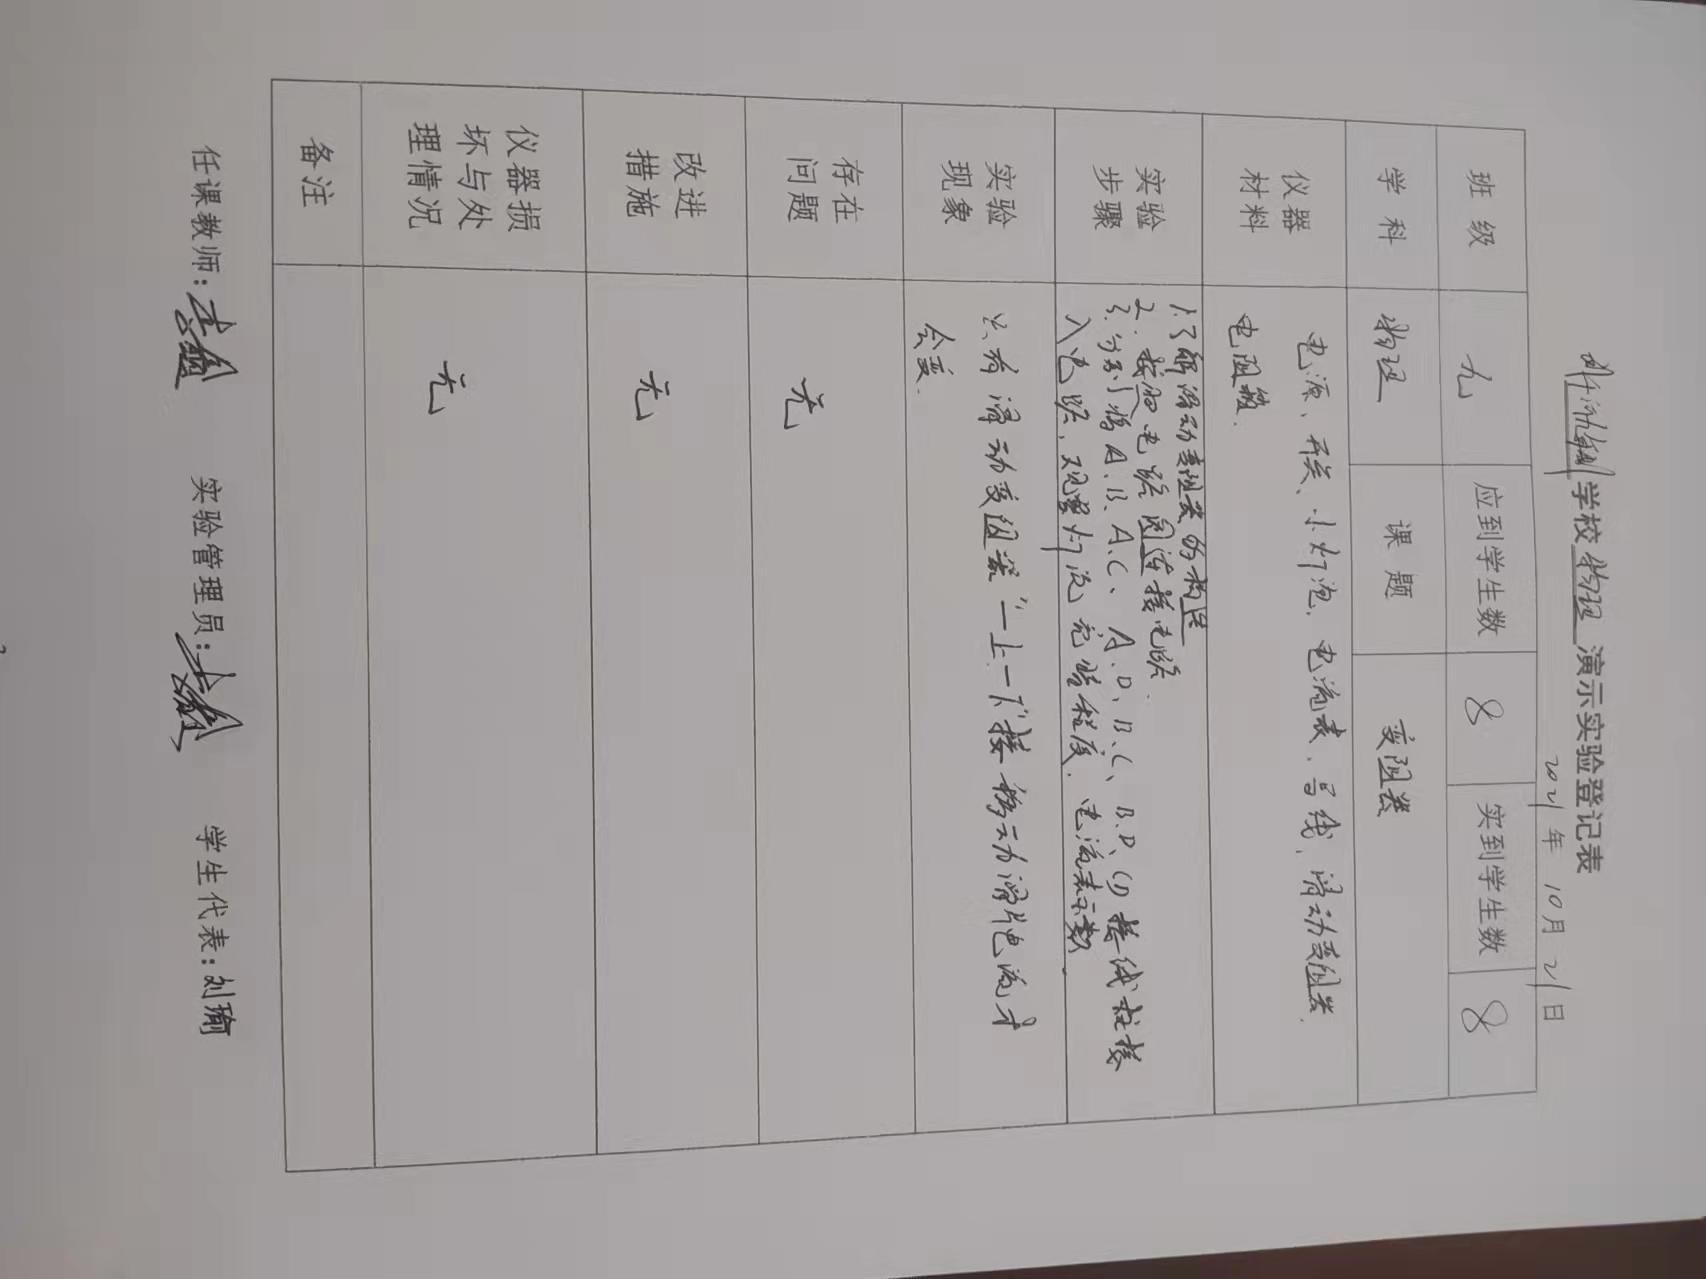 学校物理演示实验登记表
2021年10月21日
班级 九 应到学生数 8 实到学生数 8
学科 物理 课题 变阻器
仪器材料 电源、开关、小灯泡、电流表、导线、滑动变阻器、
电阻
实验步骤 1.了解滑动变阻器的构造
2.按照电路图连接电路.
3.分别将A、B、A、C、A、D、B、C、B、D、CD接线柱接
入电路,观察灯泡亮暗程度、电流表示数
实验现象 只有滑动变阻器“一上一下”接移动滑片电流才
会变.
存在问题 无
改进措施 无
仪器损坏与处理情况 无
备注
任课教师: 实验管理员: 学生代表:刘瑜